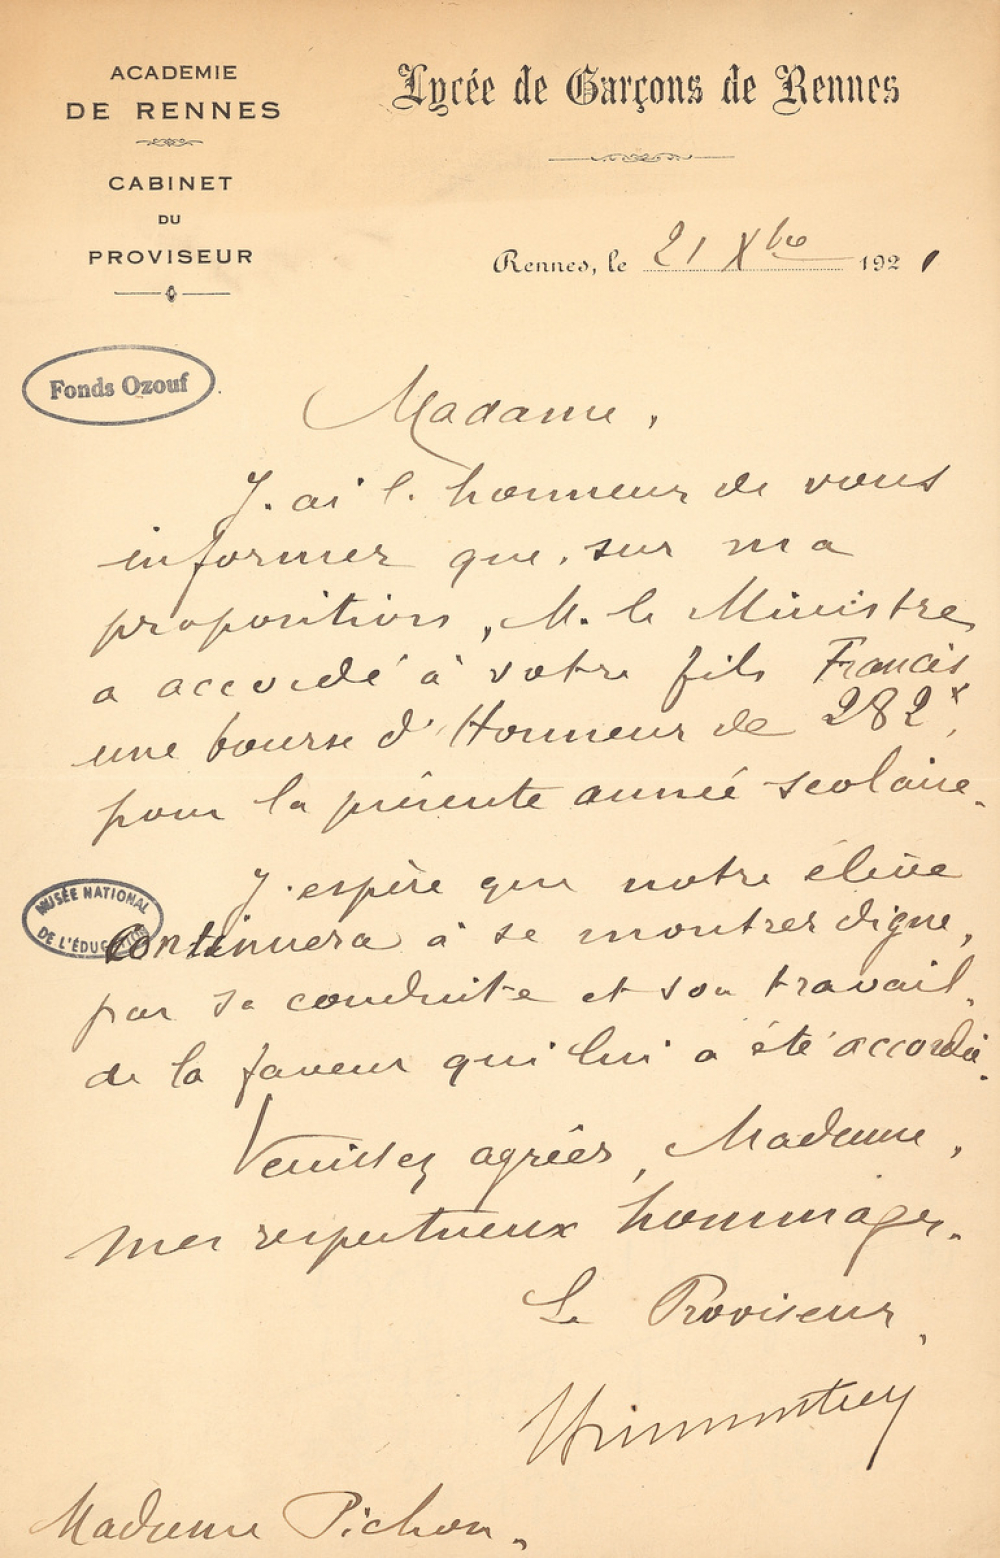 ACADEMIE
DE RENNES
CABINET
DU
PROVISEUR
Lycée de Garçons de Rennes
Rennes, le 21 Xbre 1921
Fonds Ozouf
Madame,
J'ai l'honneur de vous
informer que, sur ma
proposition, M. le Ministre
a accordé à votre fils Francis
une bourse d'Honneur de 282 x,
pour la présente année scolaire.
J'espère que notre élève
continuera à se montrer digne,
par sa conduite et son travail,
de la faveur qui lui a été accordée.
Veuillez agréer, Madame,
mes respectueux hommages.
Le Proviseur,
Madame Pichon.
MUSÉE NATIONAL
DE L'ÉDUCATION